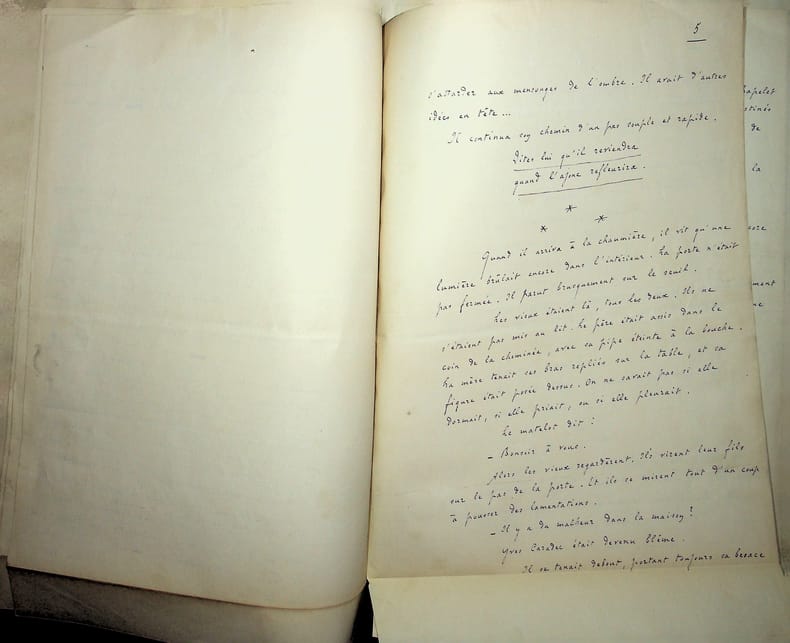 5
s'attarder aux mensonges de l'ombre. Il avait d'autres
idées en tête...
Il continua soy chemin d'un pas souple et rapide.
Dites lui qu'il reviendra
quand l'ajonc refleurira.
* * *
Quand il arriva à la chaumière, il vit qu'une
lumière brûlait encore dans l'intérieur. La porte n'était
pas fermée. Il parut brusquement sur le seuil.
Les vieux étaient là, tous les deux. Ils ne
s'étaient pas mis au lit. Le père était assis dans le
coin de la cheminée, avec sa pipe éteinte à la bouche.
La mère tenait ses bras repliés sur la table, et sa
figure était posée dessus. On ne savait pas si elle
dormait, si elle priait, ou si elle pleurait.
Le matelot dit :
- Bonsoir à vous.
Alors les vieux regardèrent. Ils virent leur fils
sur le pas de la porte. Et ils se mirent tout d'un coup
à pousser des lamentations.
- Il y a du malheur dans la maisoy ?
Yves Caradec était devenu blême.
Il se tenait debout, portant toujours sa besace
de
la